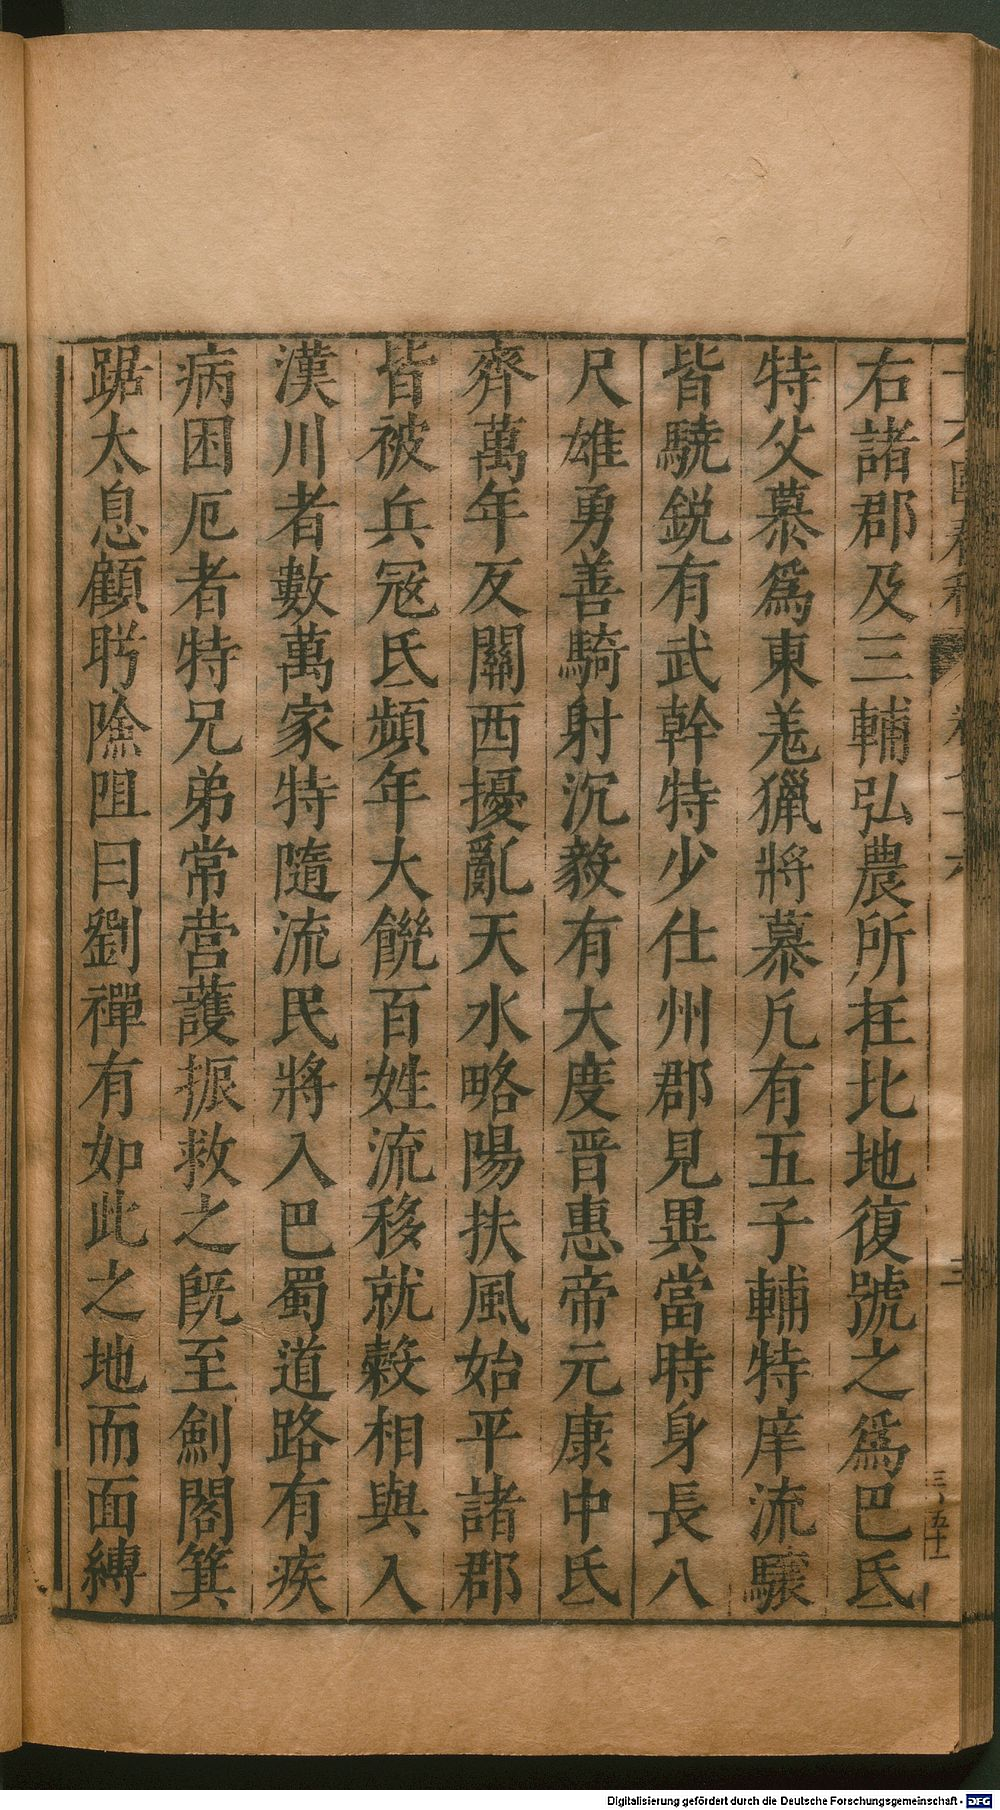 右諸郡及三輔弘農所在北地復號之爲巴氐
特父慕爲東羌獵將慕凡有五子輔特庠流驤
皆驍銳有武幹特少仕州郡見異當時身長八
尺雄勇善騎射沉毅有大度晋惠帝元康中氐
齊萬年反關西擾亂天水略陽扶風始平諸郡
皆被兵冦氐頻年大饑百姓流移就穀相與入
漢川者數萬家特隨流民將入巴蜀道路有疾
病困厄者特兄弟常营護振救之旣至劍閣箕
踞太息顧盻險阻曰劉禪有如此之地而面縛
三
三、五十一
Digitalisierung gefördert durch die Deutsche Forschungsgemeinschaft - DFG